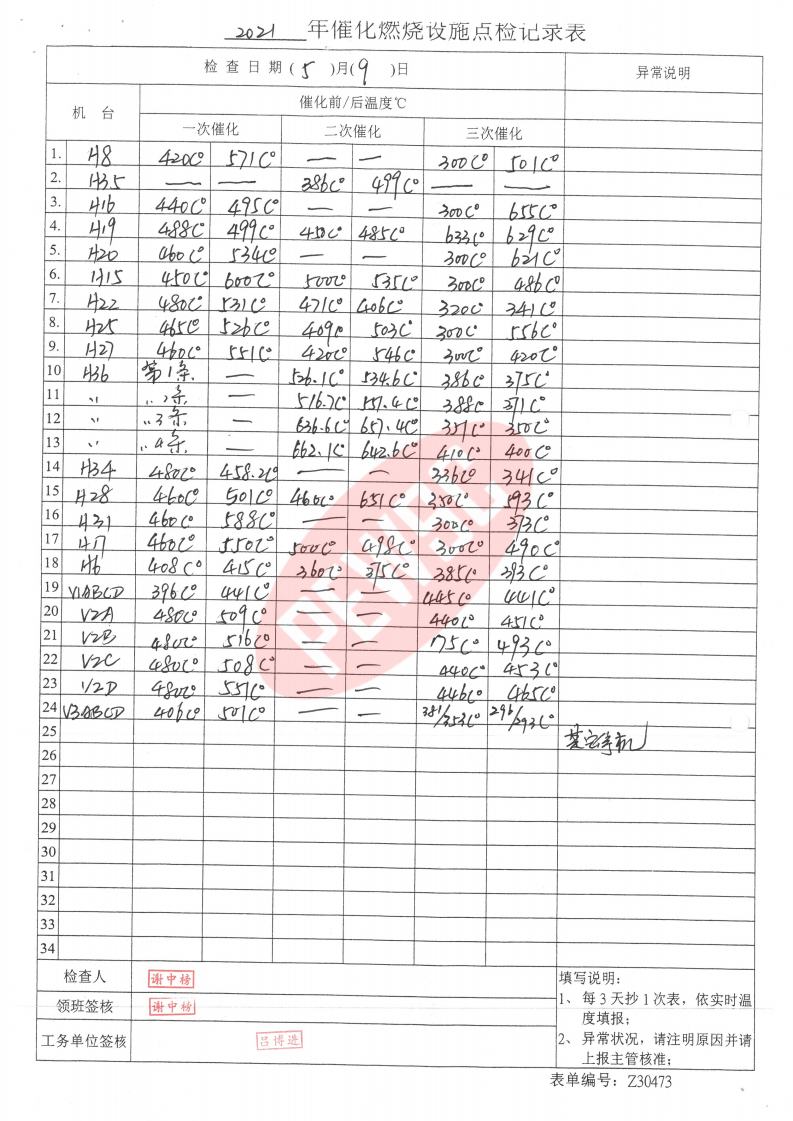 2021 年催化燃烧设施点检记录表
检查日期(5)月(9)日 异常说明
机 台 催化前/后温度℃
一次催化 二次催化 三次催化
1. H8 420C° 571C° — — 300C° 501C°
2. H35 — — 386C° 499C° — —
3. H16 440C° 495C° — — 300C° 655C°
4. H19 488C° 499C° 450C° 485C° 633C° 629C°
5. H20 460C° 534C° — — 300C° 621C°
6. H15 450C° 600C° 500C° 535C° 300C° 486C°
7. H22 480C° 531C° 471C° 406C° 320C° 341C°
8. H25 465C° 526C° 409C° 503C° 300C° 556C°
9. H27 460C° 551C° 420C° 546C° 300C° 420C°
10 H36 第1条 — 526.1C° 534.6C° 386C° 375C°
11 〃 〃2条 — 516.7C° 557.4C° 388C° 371C°
12 〃 〃3条 — 636.6C° 657.4C° 371C° 350C°
13 〃 〃4条 — 662.1C° 642.6C° 410C° 400C°
14 H34 480C° 458.2C° — — 336C° 341C°
15 H28 460C° 501C° 460C° 651C° 350C° 593C°
16 H31 460C° 588C° — — 300C° 373C°
17 H17 460C° 550C° 500C° 498C° 300C° 490C°
18 H6 408C° 415C° 360C° 375C° 385C° 393C°
19 V1ABCD 396C° 441C° — — 445C° 441C°
20 V2A 480C° 509C° — — 440C° 451C°
21 V2B 480C° 516C° — — 175C° 493C°
22 V2C 480C° 508C° — — 440C° 453C°
23 V2D 480C° 551C° — — 446C° 465C°
24 V3ABCD 406C° 501C° — — 381/353C° 296/293C°
25 其它停机
26
27
28
29
30
31
32
33
34
PEWRC
检查人 谢中榜
领班签核 谢中榜
工务单位签核 吕博进
填写说明:
1、每3天抄1次表，依实时温
度填报;
2、异常状况，请注明原因并请
上报主管核准;
表单编号: Z30473